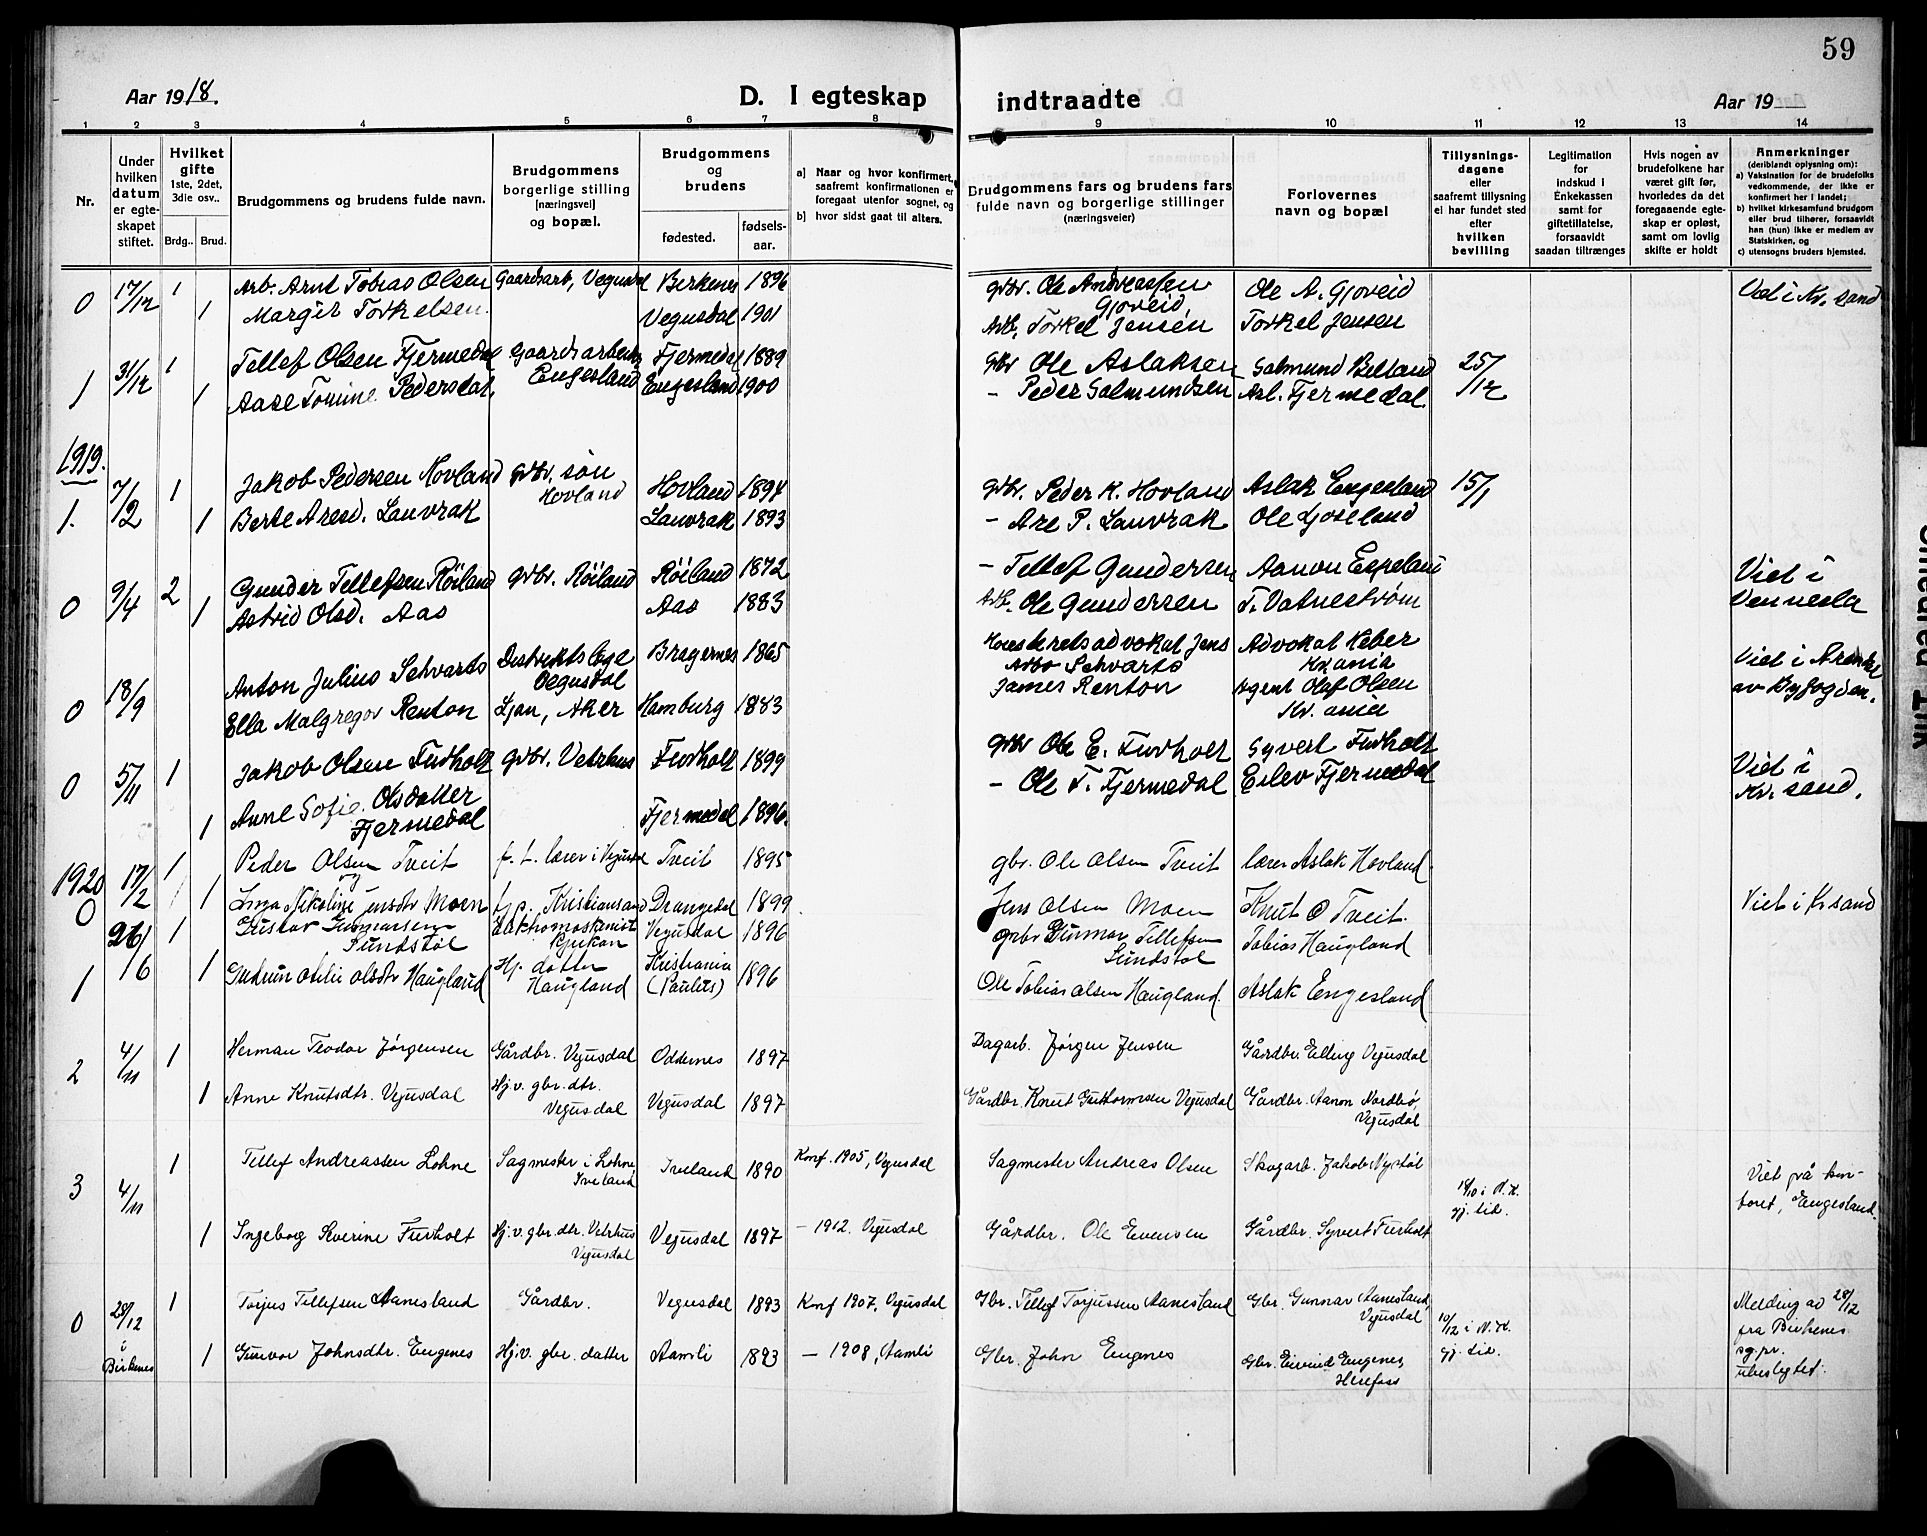 59
Aar 1918.
D. I egteskap indtraadte
Aar 19
1 2 3 4 5 6 7 8 9 10 11 12 13 14
Nr.
Under hvilken datum er egte-skapet stiftet.
Hvilket gifte
1ste, 2det, 3die osv..
Brdg.. Brud.
Brudgommens og brudens fulde navn.
Brudgommens borgerlige stilling [næringsvei] og bopæl.
Brudgommens og brudens
fødested. fødsels-aar.
a) Naar og hvor konfirmert, saafremt konfirmationen er foregaat utenfor sognet, og
b) hvor sidst gaat til alters.
Brudgommens fars og brudens fars fulde navn og borgerlige stillinger (næringsveier)
Forlovernes navn og bopæl
Tillysnings-dagene eller saafremt tillysning ei har fundet sted efter hvilken bevilling
Legitimation for indskud i Enkekassen samt for giftetillatelse, forsaavidt saadan tiltrænges
Hvis nogen av brudefolkene har været gift før, hvorledes da det foregaaende egte-skap er opløst, samt om lovlig skifte er holdt
Anmerkninger (deriblandt oplysning om):
a) Vaksination for de brudefolks vedkommende, der ikke er konfirmert her i landet;
b) hvilket kirkesamfund brudgom eller brud tilhører, forsaavidt han (hun) ikke er medlem av Statskirken, og
c) utensogns bruders hjemsted.
0 17/12 1 Arb. Arnt Tobias Olsen Gaardsarb, Vegusdal Birkenes 1896 gbr. Ole Andreassen Gjoveid Ole A. Gjoveid Viet i Kr. sand
1 Margit Torkelsen. Vegusdal 1901 Arb. Torkel Jensen Torkel Jensen
1 31/12 1 Tellef Olsen Fjermedal Gaardsarbeider Engesland Fjermedal 1889 Gbr Ole Aslaksen Salmund Belland 25/12
1 Aase Tomine Pedersdat. Engesland 1900 - Peder Salmundsen Asl. Fjermedal
1919.
1. 7/2 1 Jakob Pedersen Hovland gbr. søn Hovland Hovland 1894 gbr. Peder K. Hovland Aslak Engesland 15/1
1 Berte Aresd. Lauvrak Lauvrak 1893 - Are P. Lauvrak Ole Gjoseland
0 9/4 2 Gunder Tellefsen Røiland gbr. Røiland Røiland 1872 - Tellef Gundersen Aanon Espeland Viet i Vennesla
1 Astrid Olsd. Aas Aas 1883 Arb. Ole Gundersen T. Vatnestrøm
0 18/9 Anton Julius Schvarts Distriktslæge Vegusdal Bragernes 1865 Høiesteretsadvokat Jens Arbo Schvarts Advokat Heber Kr.ania Viet i Arendal av Byfogden.
Ella Malgregor Renton Ljan, Aker Hamburg 1883 James Renton Agent Olaf Olsen Kr. ania
0 5/11 1 Jakob Olsen Furholt gbr. Vetrhus Furholt 1899 gbr Ole E. Furholt Syvert Furholt Viet i Kr. sand.
1 Anne Sofie Olsdatter Fjermedal Fjermedal 1896. - Ole T. Fjermedal Eilev Fjermedal
1920
0 17/2 1 Peder Olsen Tveit f. t. lærer i Vegusdal Tveit 1895 gbr. Ole Olsen Tveit lærer Aslak Hovland
og
1 Inga Nikoline Jensdtr Moen Kristiansand Drangedal 1899 Jens Olsen Moen Knut O Tveit. Viet i Kr sand
1 26/6 1 Gustav Gunnarsen Sundstøl Rjukan Vegusdal 1896 gbr Gunnar Tellefsen Sundstøl Tobias Haugland
1 Gudrun Otilie Olsdtr Haugland Hj. datter Haugland Kristiania (Paulus) 1896 Ole Tobias Olsen Haugland. Aslak Engesland
2 4/11 1 Herman Teodor Jørgensen Gårdbr. Vegusdal Oddernes 1897 Dagarb. Jørgen Jensen Gårdbr. Elling Vegusdal
1 Anne Knutsdtr. Vegusdal Hj.v. gbr. dtr. Vegusdal Vegusdal 1897 Gårdbr. Knut Guttormsen Vegusdal Gårdbr. Aanon Nordbø, Vegusdal
3 4/11 1 Tellef Andreassen Lohne Sagmester i Lohne, Iveland Iveland 1890 Konf. 1905, Vegusdal Sagmester Andreas Olsen Skogarb. Jakob Nystøl 18/10 i N. K. gj. lid. Viet på kon-toret, Engesland.
1 Ingeborg Severine Furholt Hj. v. gbr. dtr. Vetrhus Vegusdal Vegusdal 1897 - 1912. Vegusdal Gårdbr. Ole Evensen Gårdbr. Syvert Furholt
0 28/12 i Birkenes 1 Torjus Tellefsen Aanesland Gårdbr. Vegusdal 1893 Konf 1907, Vegusdal Gbr. Tellef Torjussen Aanesland Gbr. Gunnar Aanesland, Vegusdal 10/12 i N. K. gj. lid. Melding av 28/12 fra Birkenes sg.pr. ubeslegtet.
1 Gunvor Johnsdtr. Eugenes Hj.v. gbr. datter Aamli 1893 - 1908, Aamli Gbr. John Eugenes Gbr. Eivind Eugenes, Herefoss